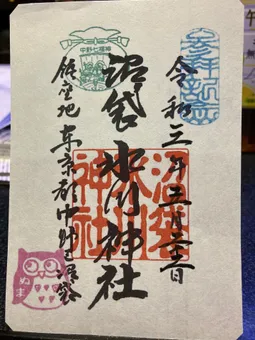 参拝記念
令和三年五月二十二日
中野七福神
沼袋氷川神社
沼袋
氷川
神社
鎮座地 東京都中野区沼袋
ぬま